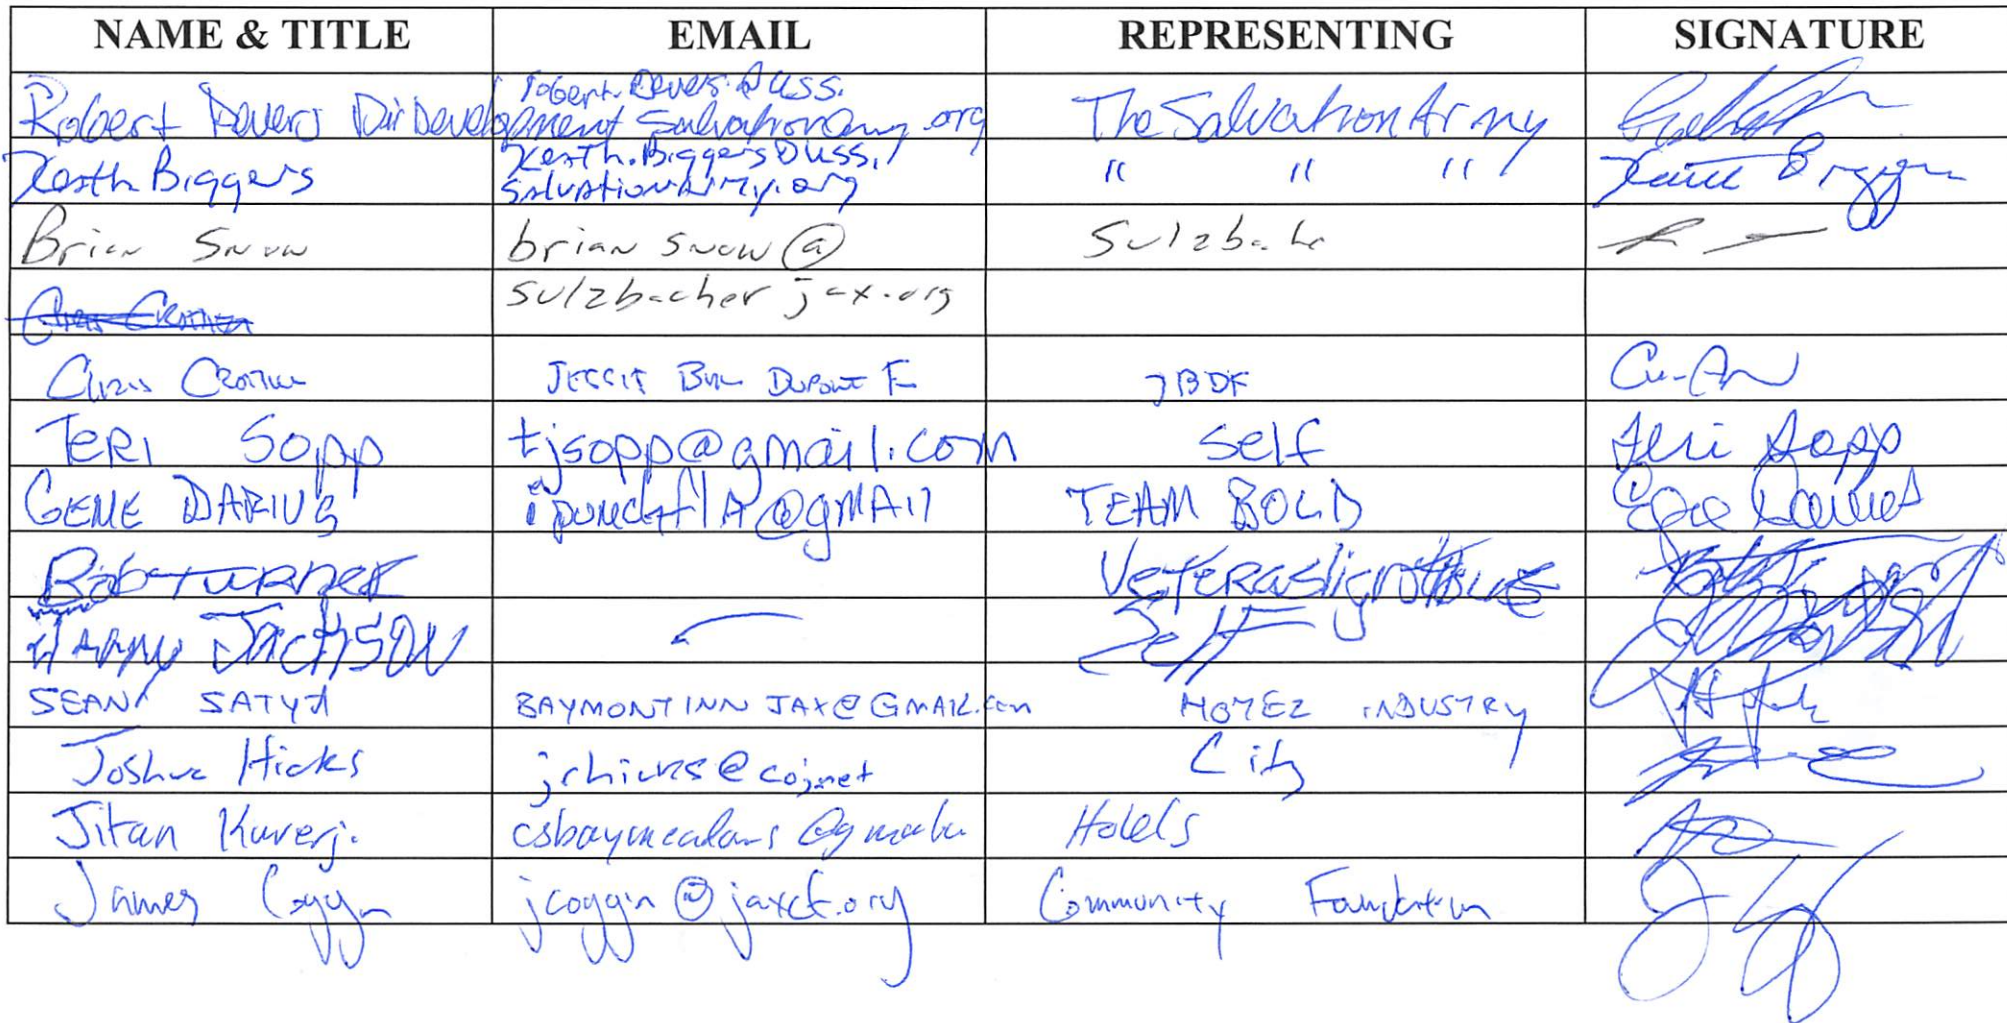 NAME & TITLE EMAIL REPRESENTING SIGNATURE
Robert Devers Dir Development Robert.Devers@uss.salvationarmy.org The Salvation Army
Keith Biggers Keith.Biggers@uss.salvationarmy.org " " " Keith Biggers
Brian Snow brian snow@ Sulzbacher
sulzbacher jax.org
Chris JBDF
TERI SOPP tjsopp@gmail.com Self Teri Sopp
GENE DARIUS ipunchflA@gMAIl TEAM BOLD Gene Darius
Bob TURNER
HARRY JACKSON Self
SEAN SATYA BAYMONT INN JAX@GMAIL.com HOTEL INDUSTRY
Joshua Hicks jrhicks@coj.net City
Jitan Kuverji Hotels
James Coggin jcoggin@jaxcf.org Community Foundation